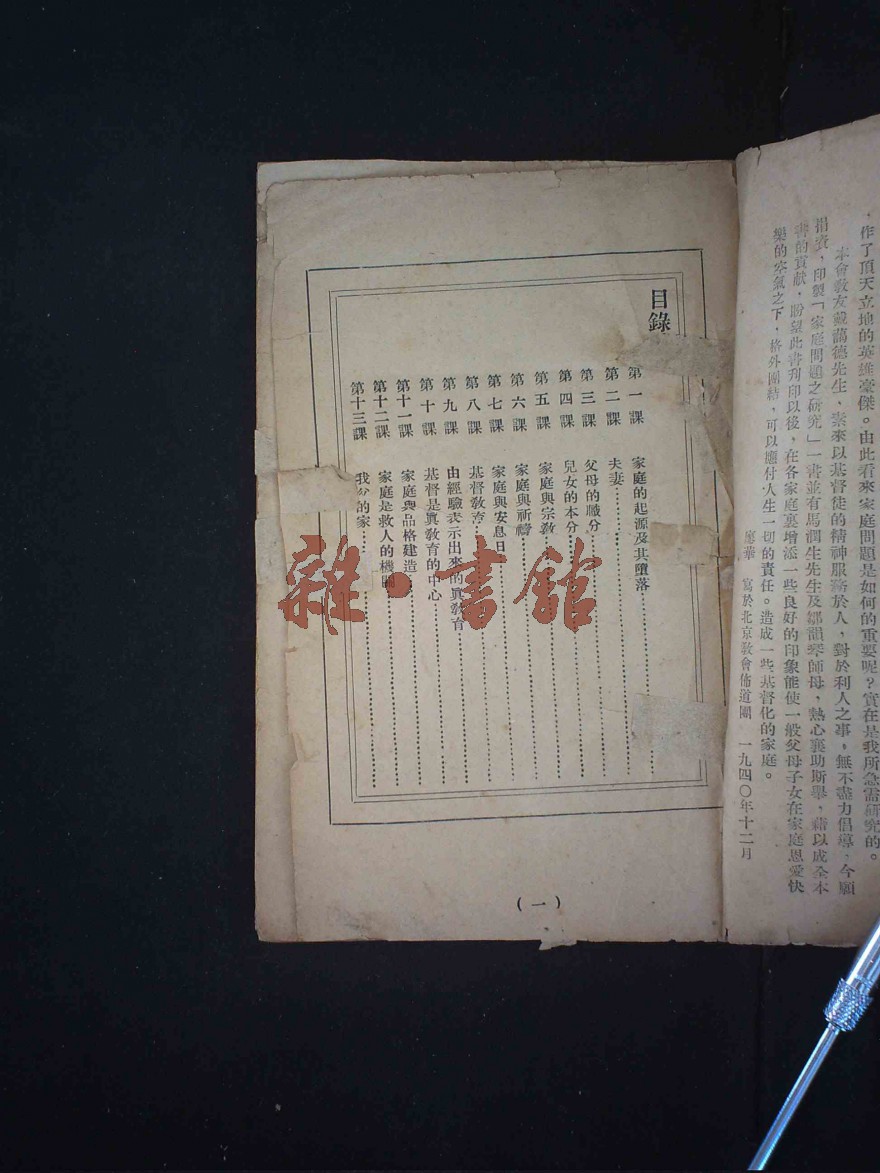 作了頂天立地的英雄豪傑。由此看來家庭問題是如何的重要呢?實在是我所急需研究的。
本會教友戴藹德先生,素來以基督徒的精神服務於人,對於利人之事,無不盡力倡導,今願
捐資,印製「家庭問題之研究」一書並有馬潤生先生及鄒韻琴師母,熱心襄助斯舉,藉以成全本
書的貢献,盼望此書刊印以後,在各家庭裏增添一些良好的印象能使一般父母子女在家庭恩愛快
樂的空氣之下,格外團結,可以應付人生一切的責任。造成一些基督化的家庭。
廖華 寫於北京敎會佈道團 一九四〇年十二月
目錄
第一課 家庭的起源及其墮落
第二課 夫妻
第三課 父母的職分
第四課 兒女的本分
第五課 家庭與宗敎
第六課 家庭與祈禱
第七課 家庭與安息日
第八課 基督敎育
第九課 由經驗表示出來的眞敎育
第十課 基督是眞敎育的中心
第十一課 家庭與品格建造
第十二課 家庭是救人的機關
第十三課 我的家
(一)
雜·書館